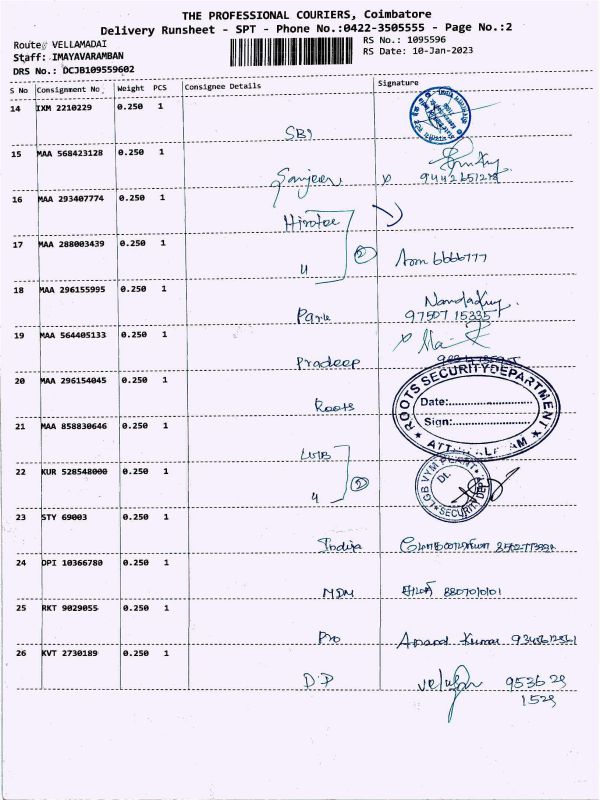 THE PROFESSIONAL COURIERS, Coimbatore
Delivery Runsheet - SPT - Phone No.:0422-3505555 - Page No.:2
Route: VELLAMADAI
RS No.: 1095596
Staff: IMAYAVARAMBAN
RS Date: 10-Jan-2023
DRS No.: DCJB109559602
S No Consignment No Weight PCS Consignee Details Signature
14 IXM 2210229 0.250 1
SBI
15 MAA 568423128 0.250 1
Sanjeev x 9442651278
16 MAA 293407774 0.250 1
Hirotec
17 MAA 288003439 0.250 1
4 2 6666777
18 MAA 296155995 0.250 1
Park 97507 15335
19 MAA 564405133 0.250 1
x
Pradeep
20 MAA 296154045 0.250 1
Roots
ROOTS SECURITY DEPARTMENT
Date:
Sign:
21 MAA 858830646 0.250 1
LGB
22 KUR 528548000 0.250 1
4 2
LGB VYM PLANT
Dt.
SECURITY DEPT
23 STY 69003 0.250 1
Indira
24 OPI 10366780 0.250 1
MDM 8807010101
25 RKT 9029055 0.250 1
Pro Anand Kumar
26 KVT 2730189 0.250 1
D.P 9536 29
1529